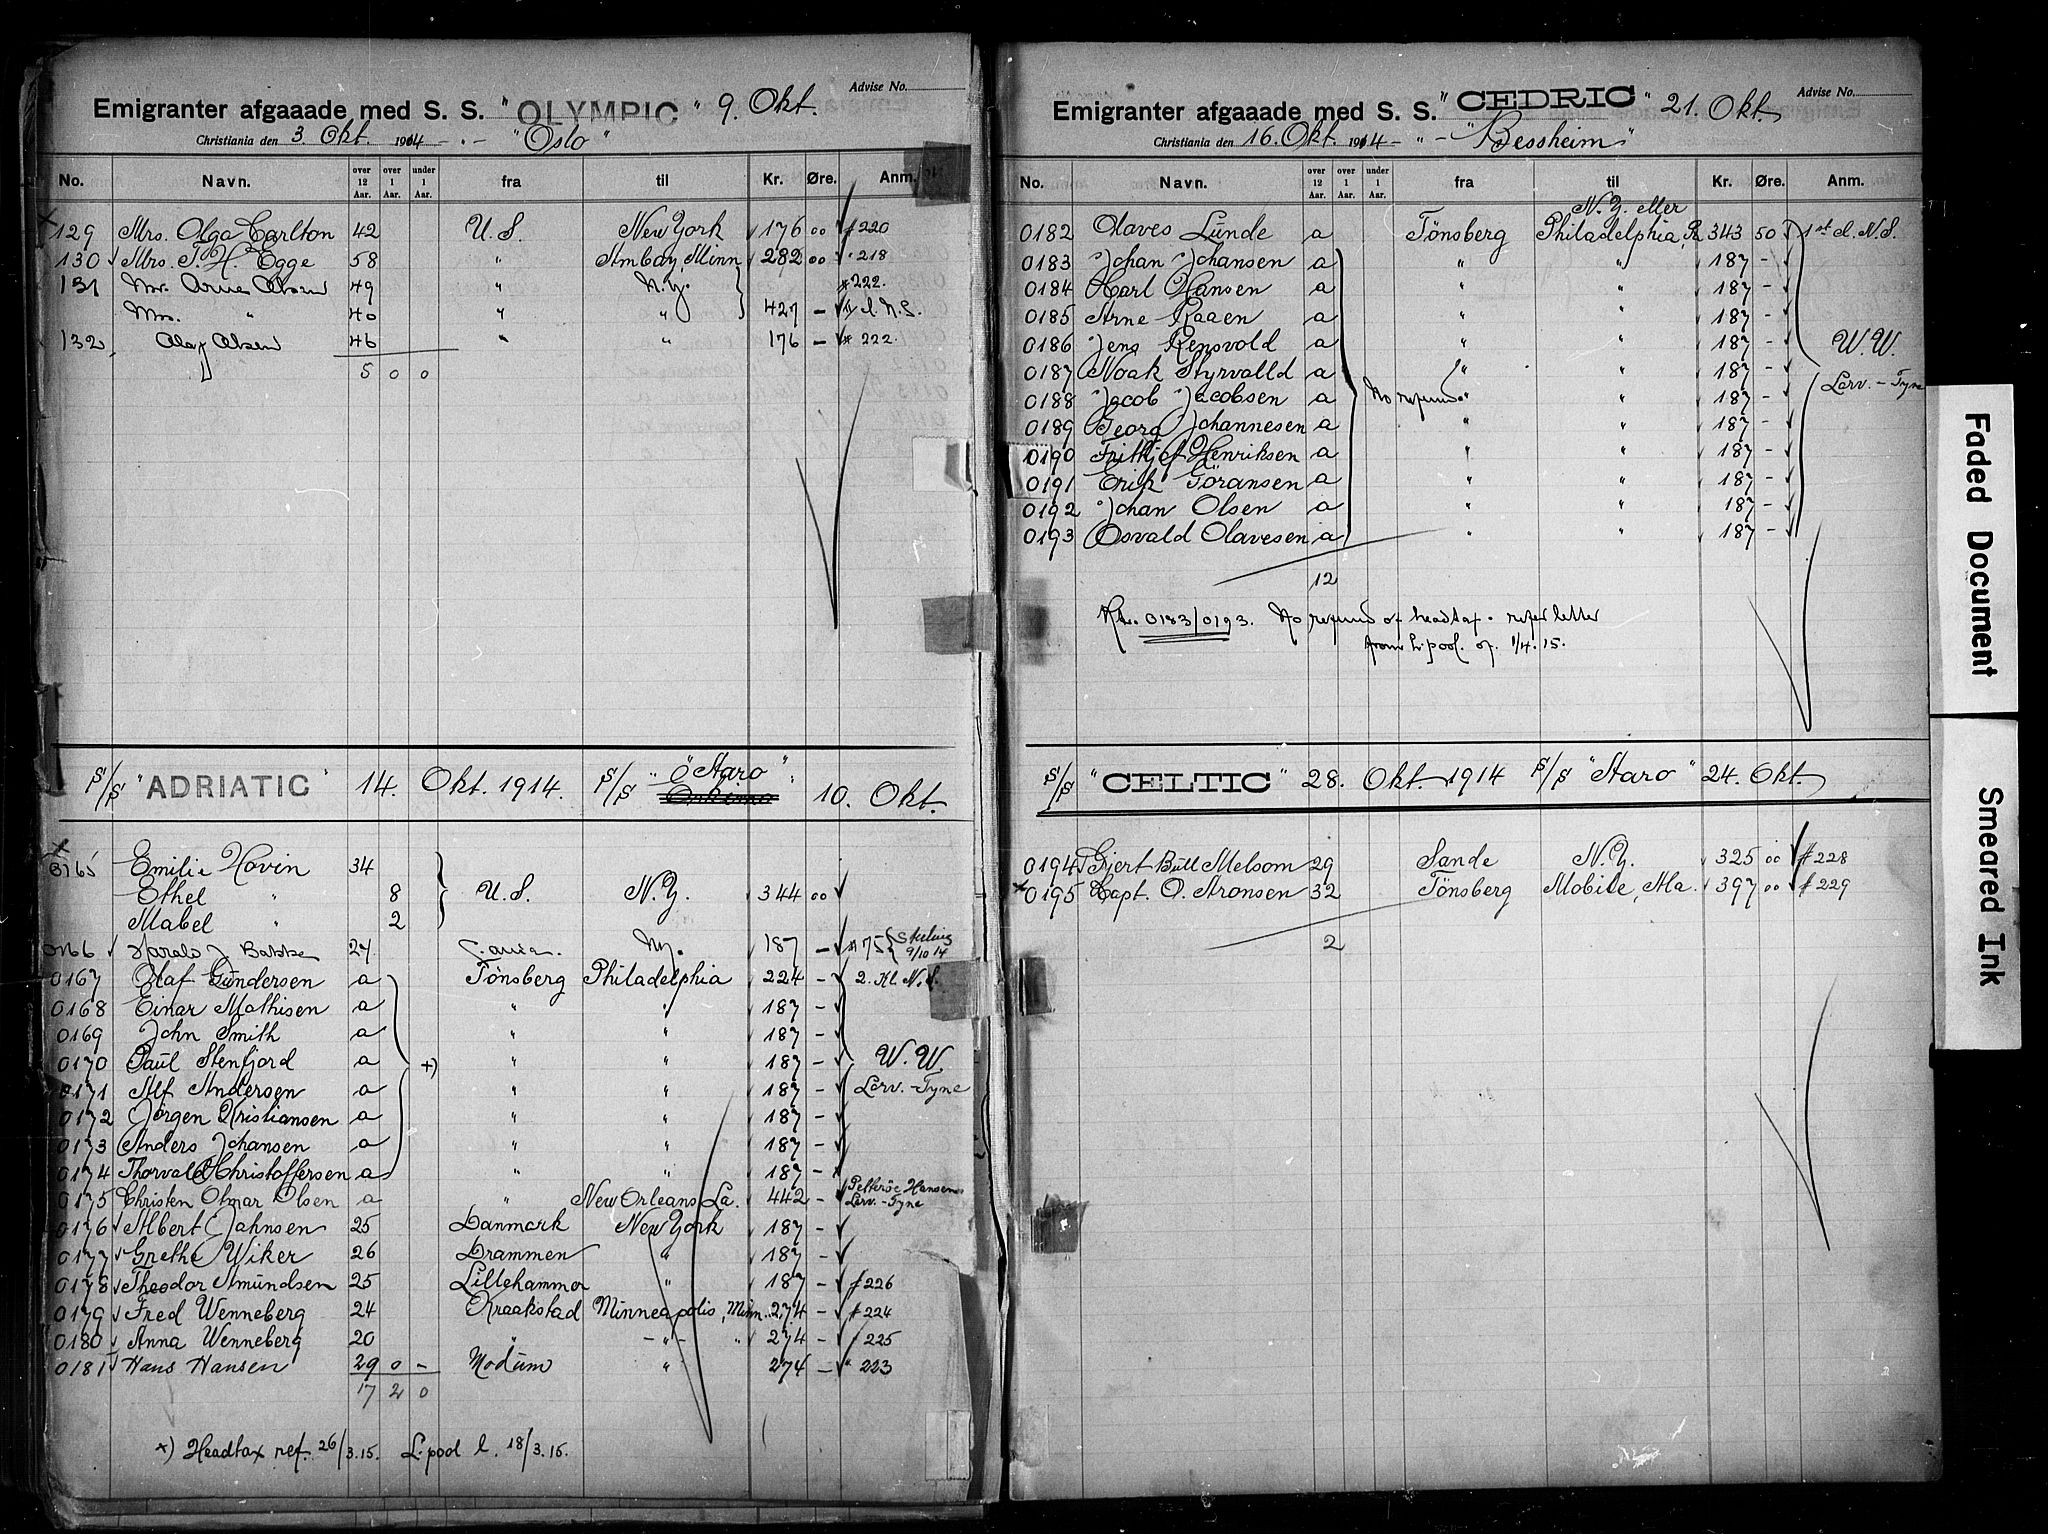 Advise No.
Emigranter afgaaade med S. S. "OLYMPIC" 9. Okt.
Christiania den 3. Okt. 1914 - " - "Oslo"
No. Navn. over 12 Aar. over 1 Aar. under 1 Aar. fra til Kr. Øre. Anm.
129 Mrs. Olga Carlton 42 U.S. New York 176 00 # 220
130 Mrs. T. H. Egge 58 " Amboy, Minn 282 00 " 218
131 Mr. Arne Olsen 49 " N.Y. # 222.
Mrs. " 40 " " 427 - II cl. N.S.
132 Olaf Olsen 46 " " 176 - # 222.
5 0 0
S/S "ADRIATIC" 14. Okt. 1914. S/S "Aaro" 10. Okt.
0165 Emilie Hovin 34
Ethel " 8 U.S. N.Y. 344 00
Mabel " 2
0166 Harald J Bakke 27 NY. 187 - # 75 Sterling 9/10 14
0167 Olaf Gundersen a Tönsberg Philadelphia 224 - 2. Kl. N.S.
0168 Einar Mathisen a " " 187 -
0169 John Smith a " " 187 -
0170 Paul Stenfjord a +) " " 187 - W.W.
0171 Alf Andersen a " " 187 - Larv. - Tyne
0172 Jörgen Kristiansen a " " 187 -
0173 Anders Johansen a " " 187 -
0174 Thorvald Christoffersen a " " 187 -
0175 Christen Olmar Olsen a " New Orleans La. 442 - Petterøe Hansen Larv. - Tyne
0176 Albert Jahnsen 25 Danmark New York 187 -
0177 Grethe Wiker 26 Drammen " 187 -
0178 Theodor Amundsen 25 Lillehammer " 187 - # 226
0179 Fred Wenneberg 24 Kraakstad Minneapolis, Minn. 274 - # 224
0180 Anna Wenneberg 20 " - " - " 274 - " 225
0181 Hans Hansen 29 0 - Modum " 274 - " 223
17 2 0
+) Headtax ref. 26/3.15. L.pool l. 18/3.15.
Advise No.
Emigranter afgaaade med S. S. "CEDRIC" 21. Okt.
Christiania den 16. Okt. 1914 - " - "Bessheim"
No. Navn. over 12 Aar. over 1 Aar. under 1 Aar. fra til Kr. Øre. Anm.
N.Y. eller
0182 Olaves Lunde a Tönsberg Philadelphia, Pa 343 50 1st cl. N.S.
0183 Johan Johansen a " " 187 -
0184 Karl Hansen a " " 187 -
0185 Arne Raaen a " " 187 -
0186 Jens Rensvold a " " 187 - W.W.
0187 Noak Styrvalld a " " 187 - Larv. - Tyne
0188 Jacob Jacobsen a No refund " " 187 -
0189 Georg Johannesen a " " 187 -
0190 Frithjof Henriksen a " " 187 -
0191 Erik Göransen a " " 187 -
0192 Johan Olsen a " " 187 -
0193 Osvald Olavesen a " " 187 -
12
Ktr. 0183/0193. No refund of headtax. refer letter
from L'pool. of. 1/4.15.
S/S "CELTIC" 28. Okt. 1914 S/S "Aaro" 24. Okt.
0194 Gjert Bull Melsom 29 Sande N.Y. 325 00 # 228
0195 Capt. O. Aronsen 32 Tönsberg Mobile, Ala. 397 00 # 229
2
Faded Document
Smeared Ink